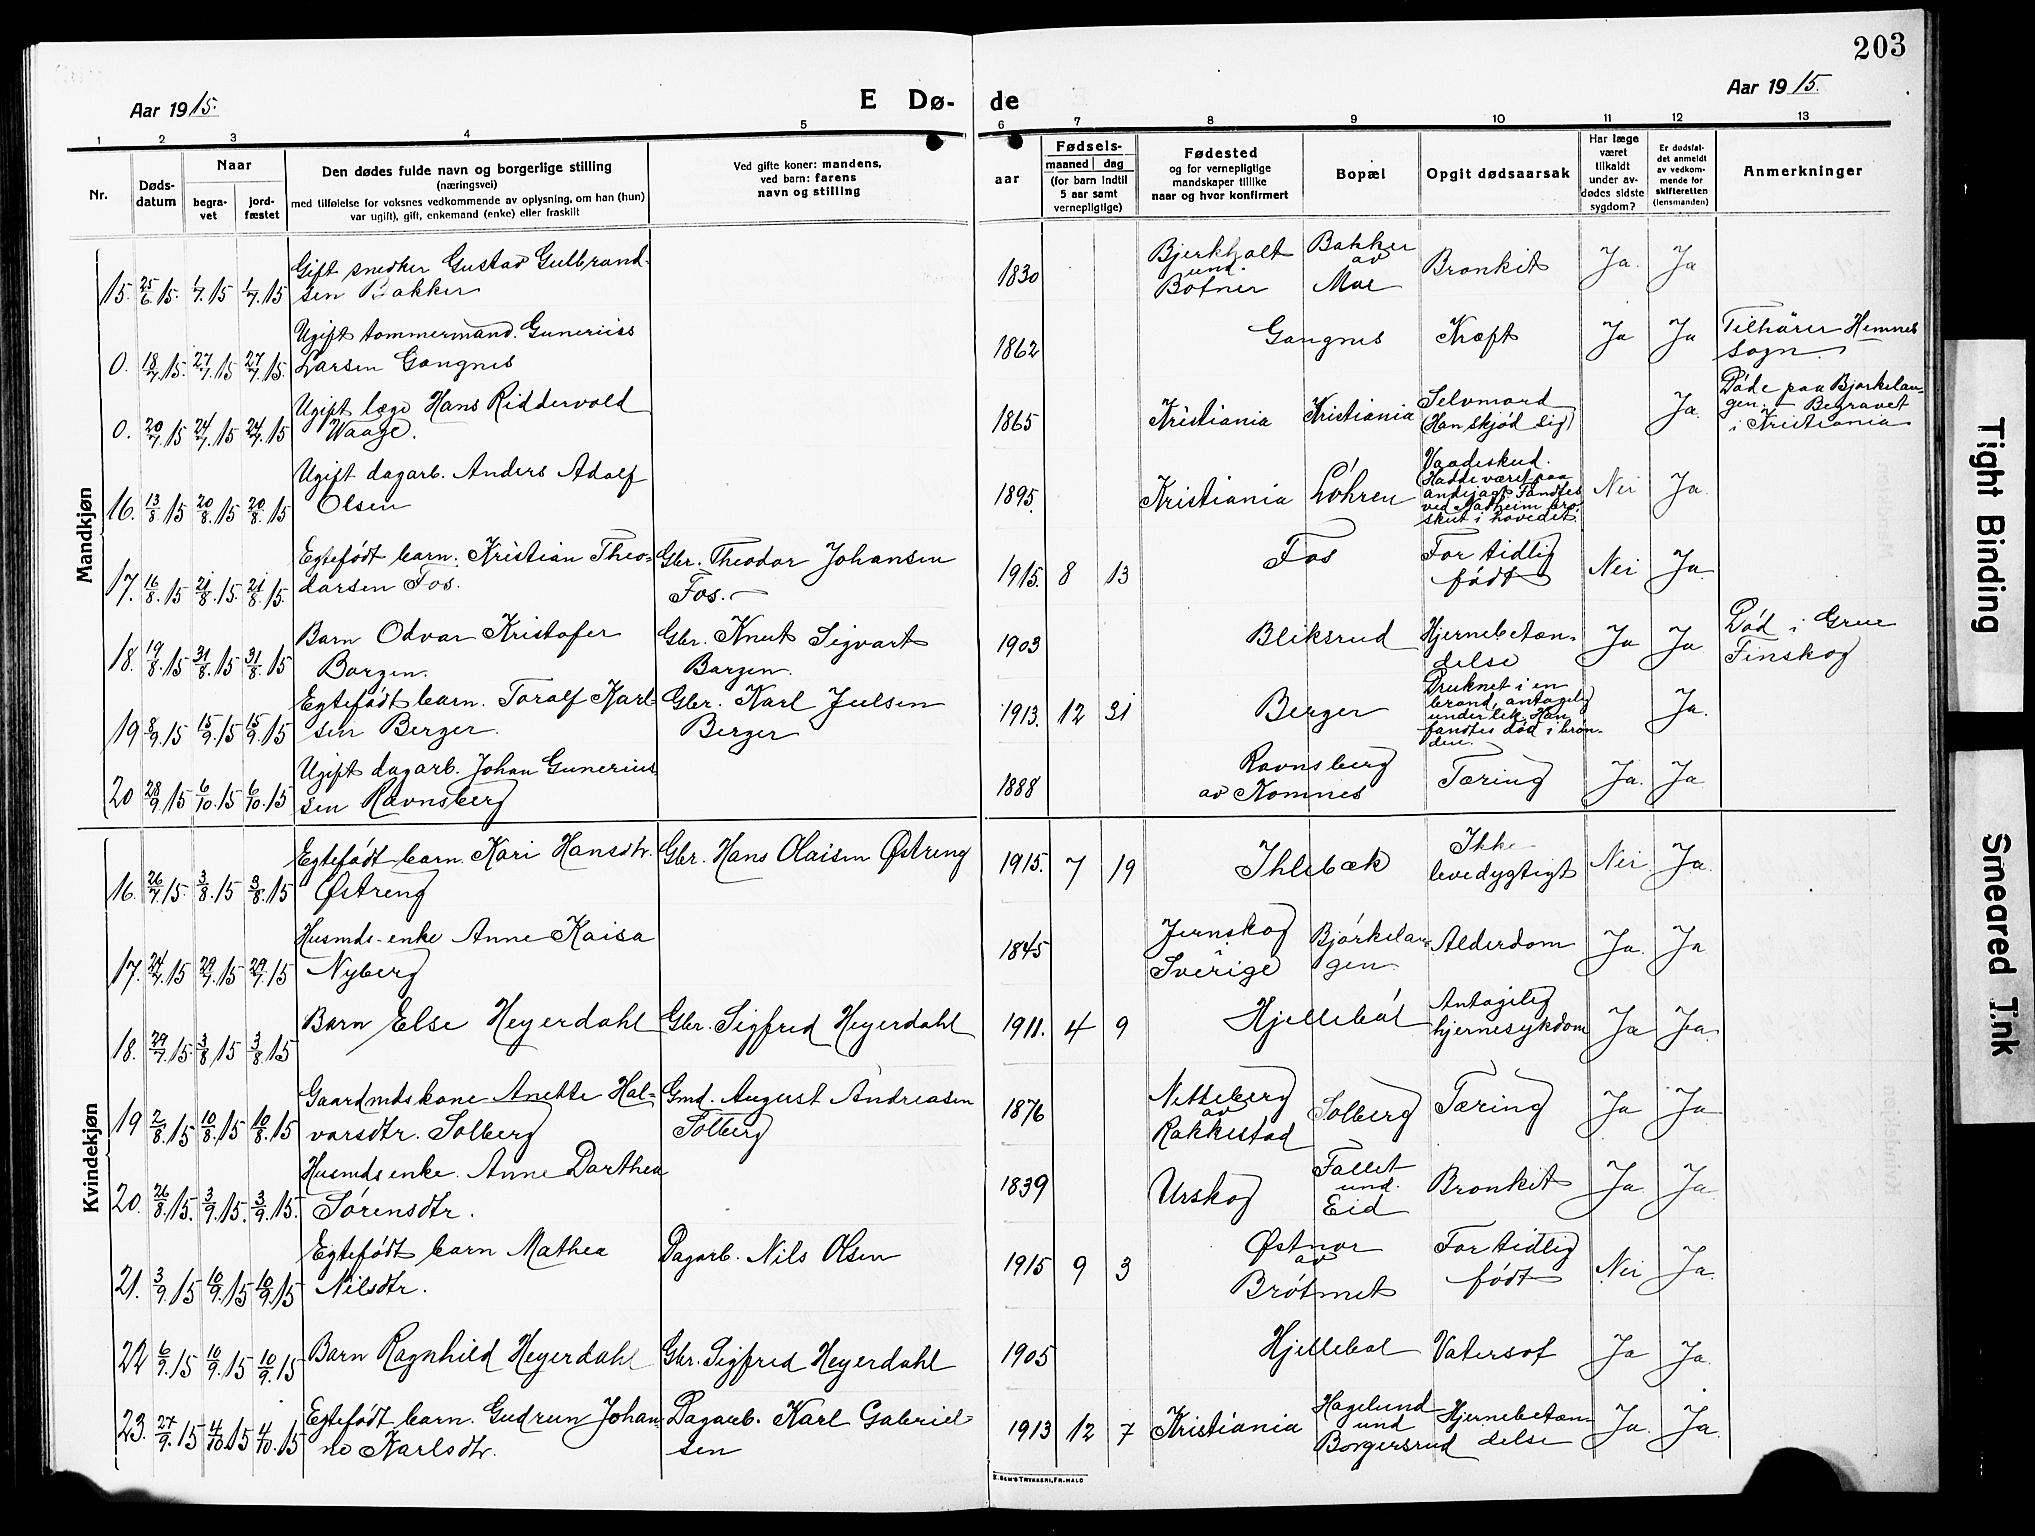 203
Aar 1915.
E Dø-
de
Aar 1915.
1 2 3 4 5 6 7 8 9 10 11 12 13
Nr.
Døds-
datum
Naar
begra-
vet
jord-
fæstet
Den dødes fulde navn og borgerlige stilling
(næringsvei)
med tilføielse for voksnes vedkommende av oplysning, om han (hun)
var ugift), gift, enkemand (enke) eller fraskilt
Ved gifte koner: mandens,
ved barn: farens
navn og stilling
Fødsels-
aar
maaned dag
(for barn indtil
5 aar samt
vernepligtige)
Fødested
og for vernepligtige
mandskaper tillike
naar og hvor konfirmert
Bopæl
Opgit dødsaarsak
Har læge
været
tilkaldt
under av-
dødes sidste
sygdom?
Er dødsfal-
det anmeldt
av vedkom-
mende for
skifteretten
(lensmanden)
Anmerkninger
Mandkjøn
15. 25/6.15. 1/7.15 1/7.15 Gift snedker Gustav Gulbrand-
sen Bakker
1830 Bjerkholt
und.
Botner
Bakker
av
Moe
Bronkit Ja. Ja
0. 18/7.15. 27/7.15 27/7.15. Ugift tømmermand. Gunerius
Larsen Gangnes
1862 Gangnes Kræft Ja Ja Tilhører Hemnes
sogn.
0. 20/7.15 24/7.15 24/7.15 Ugift læge Hans Riddervold
Waage.
1865 Kristiania Kristiania Selvmord
(Han skjød sig)
Ja. Døde paa Bjørkelan-
gen. Begravet
i Kristiania
16. 13/8.15 20/8.15 20/8.15 Ugift dagarb. Anders Adolf
Olsen
1895. Kristiania Løhren Vaadeskud.
(Hadde været paa
andejagt. Fandtes
ved
skut i hovedet.
Nei Ja.
17. 16/8.15 21/8.15. 21/8.15. Egtefødt barn. Kristian Theo-
dorsen Fos.
Gbr. Theodor Johansen
Fos.
1915. 8 13 Fos For tidlig
født
Nei Ja.
18. 19/8.15 31/8.15 31/8.15 Barn Odvar Kristofer
Borgen.
Gbr. Knut Sigvart
Borgen.
1903 Bliksrud Hjernebetæn-
delse
Ja Ja Død i Grue
Finskog
19 8/9.15 15/9.15 15/9.15 Egtefødt barn. Toralf Karl-
sen Berger.
Gbr. Karl Julsen
Berger
1913. 12 31 Berger Druknet i en
brønd, antagelig
under lek. Han
fandtes død i brøn-
den.
Ja.
20 28/9.15 6/10.15 6/10.15 Ugift dagarb. Johan Gunerius-
sen Ravnsberg
1888 Ravnsberg
av Komnes
Tæring Ja. Ja
Kvindekjøn
16. 26/7.15. 3/8.15 3/8.15 Egtefødt barn. Kari Hansdtr.
Østreng
Gbr. Hans Olaisen Østreng
1915. 7 19 Ihlebæk Ikke
levedygtigt
Nei. Ja.
17. 24/7.15 29/7.15 29/7.15 Husmds-enke Anne Kaisa
Nyberg
1845 Jernskog
i
Sverige
Bjørkelan-
gen
Alderdom Ja. Ja
18. 29/7.15 3/8.15 3/8.15 Barn Else Heyerdahl Gbr. Sigfred Heyerdahl
1911. 4 9 Hjellebøl Antagelig
hjernesykdom
Ja Ja.
19 2/8.15 10/8.15 10/8.15 Gaardmdskone Anette Hal-
vorsdtr. Solberg
Gmd. August Andreasen
Solberg
1876 Netteberg
av
Rakkestad
Solberg Tæring Ja Ja
20. 26/8.15. 3/9.15. 3/9.15. Husmds enke. Anne Dorthea
Sørensdtr.
1839 Urskog Fallet
und.
Eid
Bronkit Ja Ja
21. 3/9.15 10/9.15 10/9.15 Egtefødt barn Mathea
Nilsdtr.
Dagarb. Nils Olsen
1915 9 3 Østnor
av
Brøtmet
For tidlig
født
Nei Ja.
22 6/9.15 10/9.15 10/9.15 Barn Ragnhild Heyerdahl Gbr. Sigfred Heyerdahl
1905 Hjellebøl Vatersot Ja Ja.
23. 27/9.15 4/10.15 4/10.15 Egtefødt barn. Gudrun Johan-
ne Karlsdtr.
Dagarb. Karl Gabriel-
sen
1913 12 7 Kristiania Hagelund
und
Borgersrud
Hjernebetæn-
delse
Ja. Ja.
Tight Binding
Smeared Ink